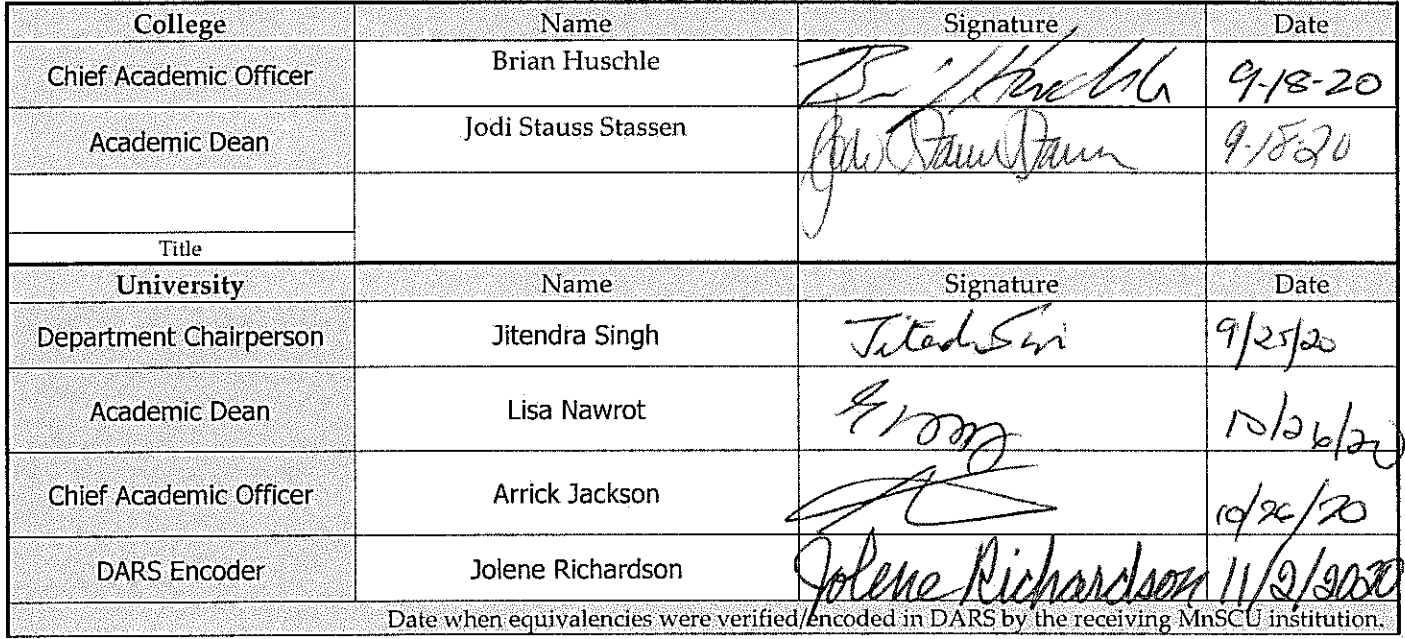 College Name Signature Date
Chief Academic Officer Brian Huschle Bri Huschle 9-18-20
Academic Dean Jodi Stauss Stassen Jodi Stauss Stassen 9-18-20
Title
University Name Signature Date
Department Chairperson Jitendra Singh 9/25/20
Academic Dean Lisa Nawrot 10/26/20
Chief Academic Officer Arrick Jackson 10/26/20
DARS Encoder Jolene Richardson Jolene Richardson 11/2/2020
Date when equivalencies were verified/encoded in DARS by the receiving MnSCU institution.